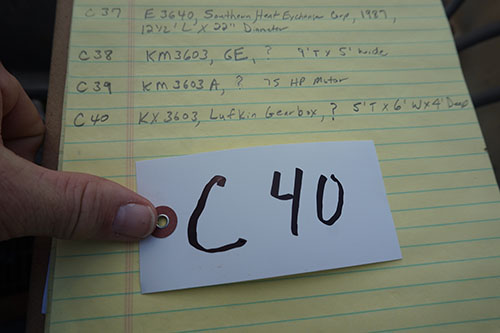 C 37 E 3640, Southern Heat Exchanger Corp, 1987,
12 1/2' L X 22" Diameter
C 38 KM3603, GE, ? 9' T X 5' wide
C 39 KM 3603 A, ? 75 HP Motor
C 40 KX 3603, Lufkin Gearbox, ? 5' T X 6' W X 4' Deep
C 40